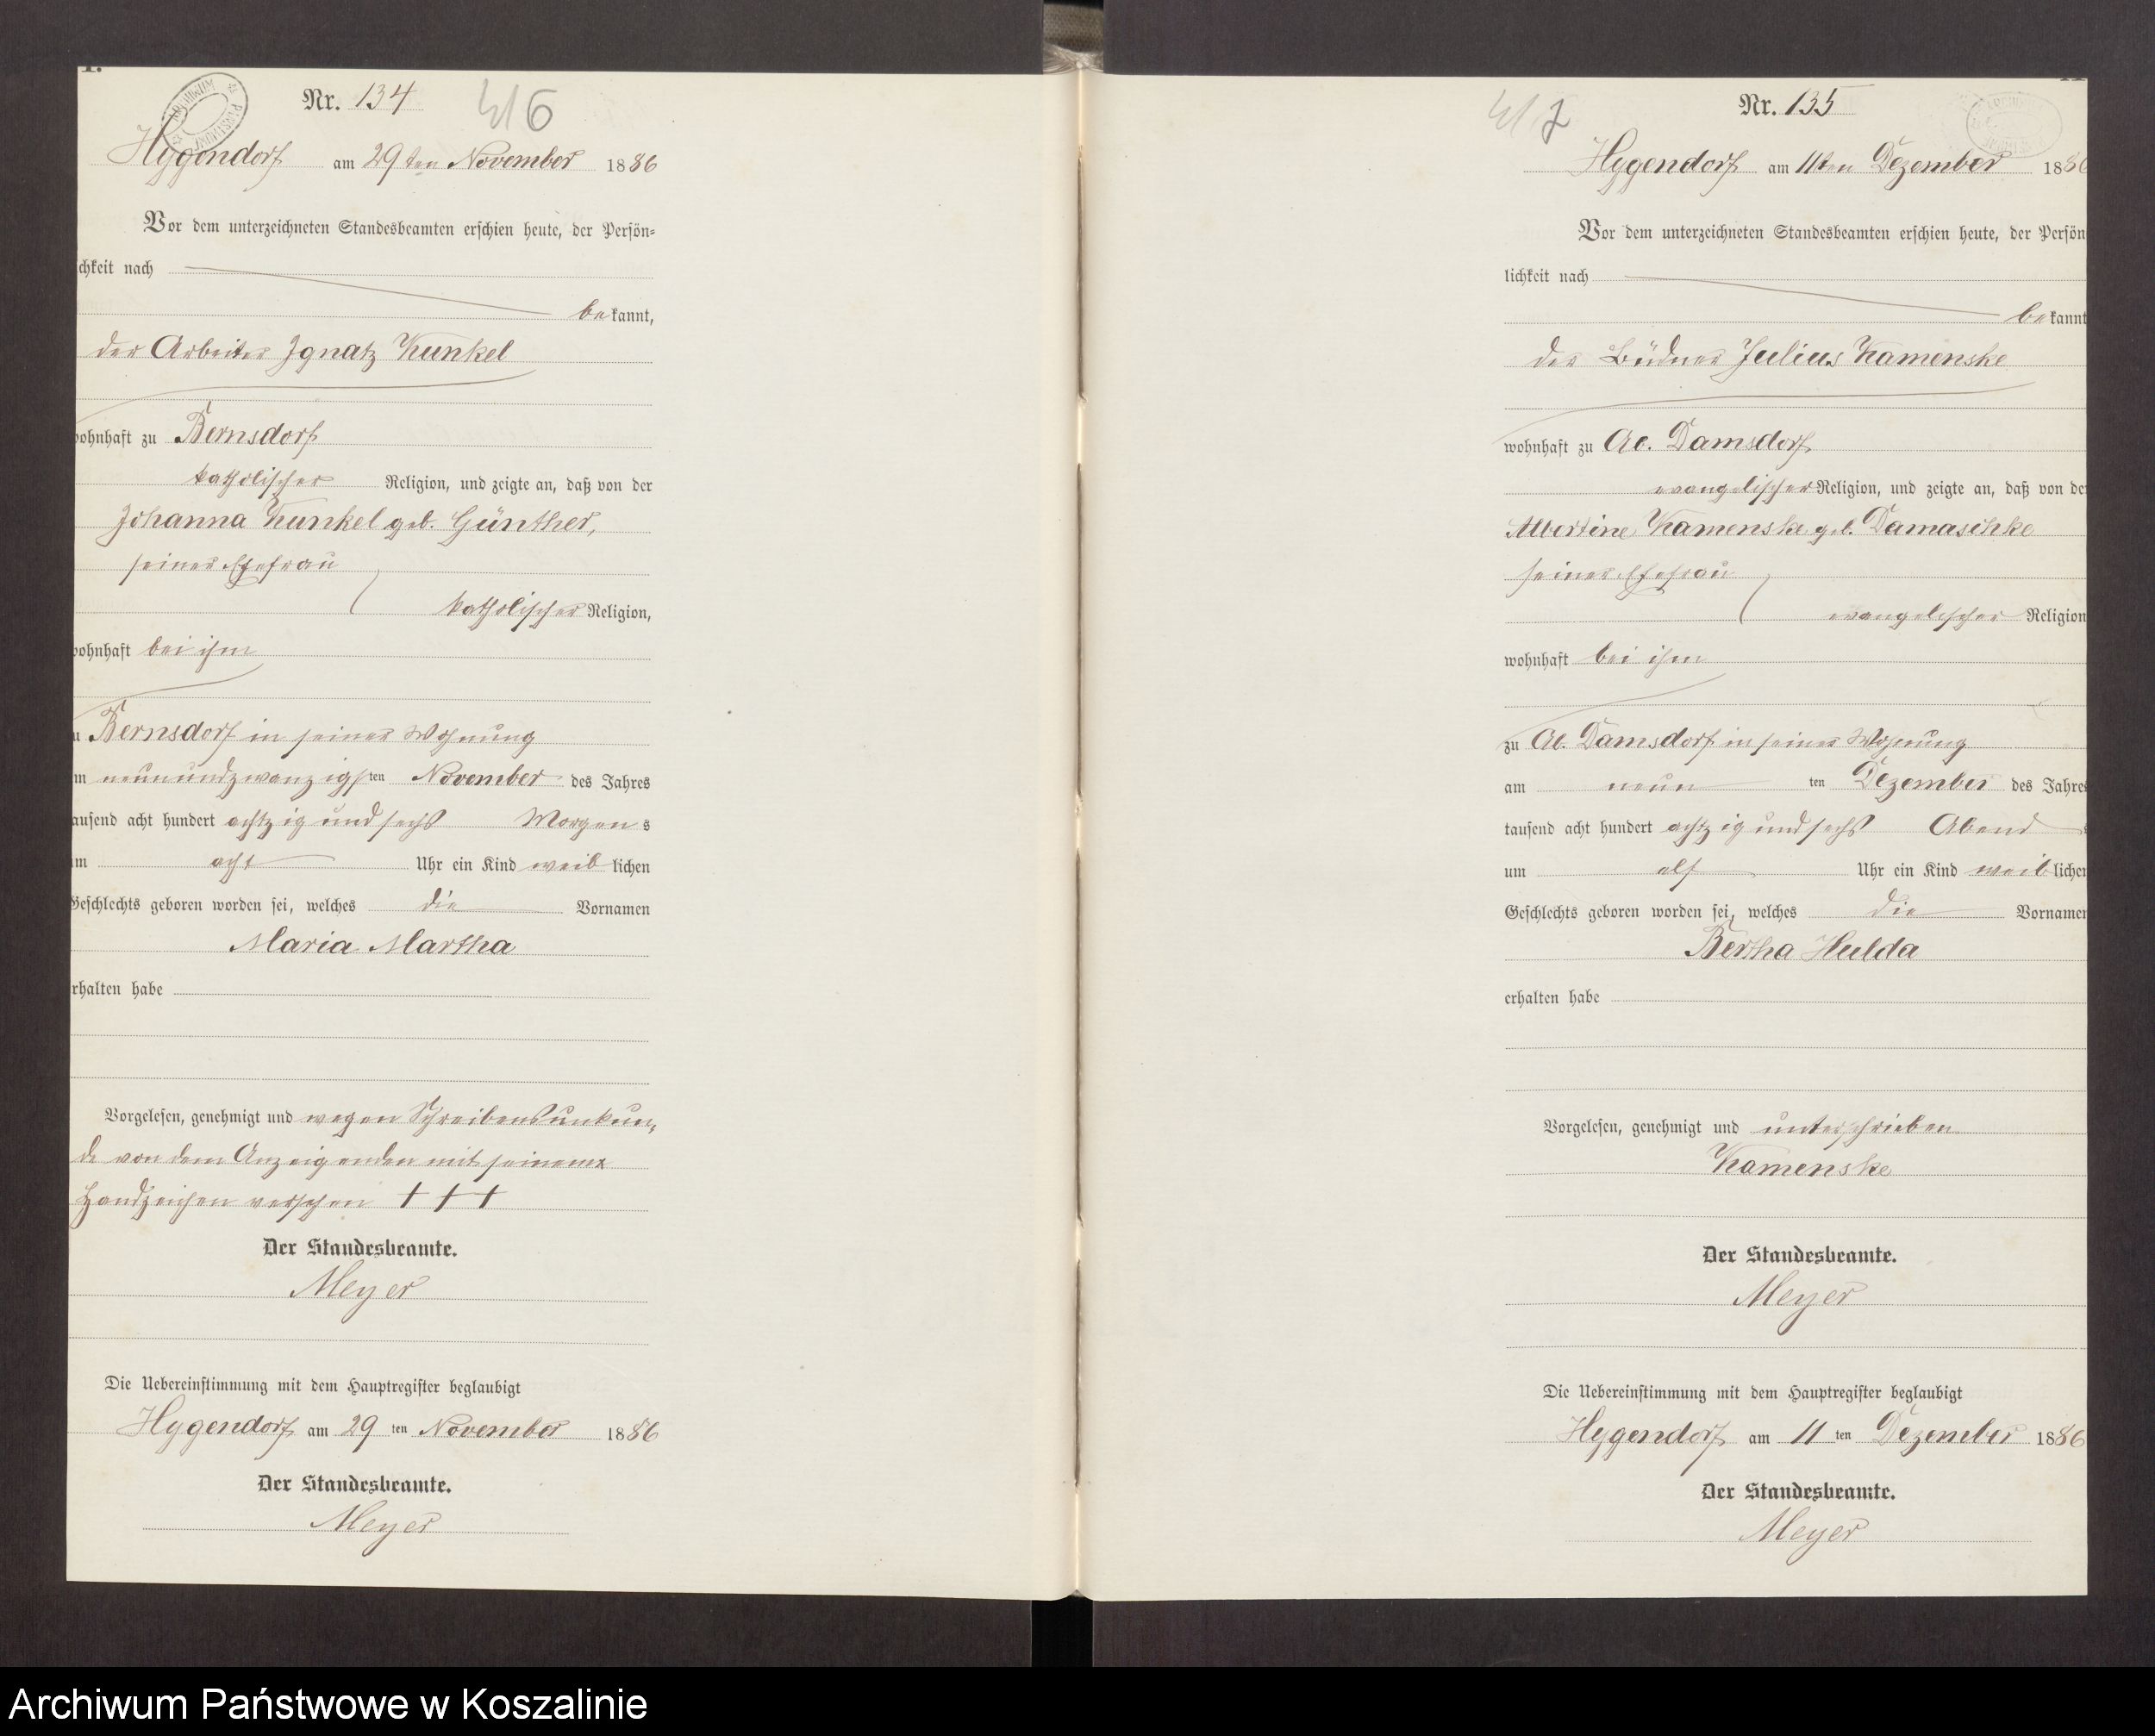 Nr. 134
Hygendorf am 29ten November 1886
Vor dem unterzeichneten Standesbeamten erschien heute, der Persön=
chkeit nach
bekannt,
der Arbeiter Ignatz Kunkel
wohnhaft zu Bernsdorf
katholischer Religion, und zeigte an, daß von der
Johanna Kunkel geb. Günther,
seiner Ehefrau
katholischer Religion,
wohnhaft bei ihm
u Bernsdorf in seiner Wohnung
m neunundzwanzigsten November des Jahres
ausend acht hundert achtzig und sechs Morgens
um acht Uhr ein Kind weiblichen
Geschlechts geboren worden sei, welches die Vornamen
Maria Martha
rhalten habe
Vorgelesen, genehmigt und wegen Schreibensunkun=
de von dem Anzeigenden mit seinem
Handzeichen versehen +++
Der Standesbeamte.
Meyer
Die Uebereinstimmung mit dem Hauptregister beglaubigt
Hygendorf am 29 ten November 1886
Der Standesbeamte.
Meyer
Nr. 135
Hygendorf am 11ten Dezember 1886
Vor dem unterzeichneten Standesbeamten erschien heute, der Persön
lichkeit nach
bekannt
der Büdner Julius Kamenske
wohnhaft zu Ad. Damsdorf
evangelischer Religion, und zeigte an, daß von der
Albertine Kamenske geb. Damaschke
seiner Ehefrau
evangelischer Religion
wohnhaft bei ihm
zu Ad. Damsdorf in seiner Wohnung
am neun ten Dezember des Jahres
tausend acht hundert achtzig und sechs Abend
um elf Uhr ein Kind weiblichen
Geschlechts geboren worden sei, welches die Vornamen
Bertha Hulda
erhalten habe
Vorgelesen, genehmigt und unterschrieben
Kamenske
Der Standesbeamte.
Meyer
Die Uebereinstimmung mit dem Hauptregister beglaubigt
Hygendorf am 11 ten Dezember 1886
Der Standesbeamte.
Meyer
Archiwum Państwowe w Koszalinie